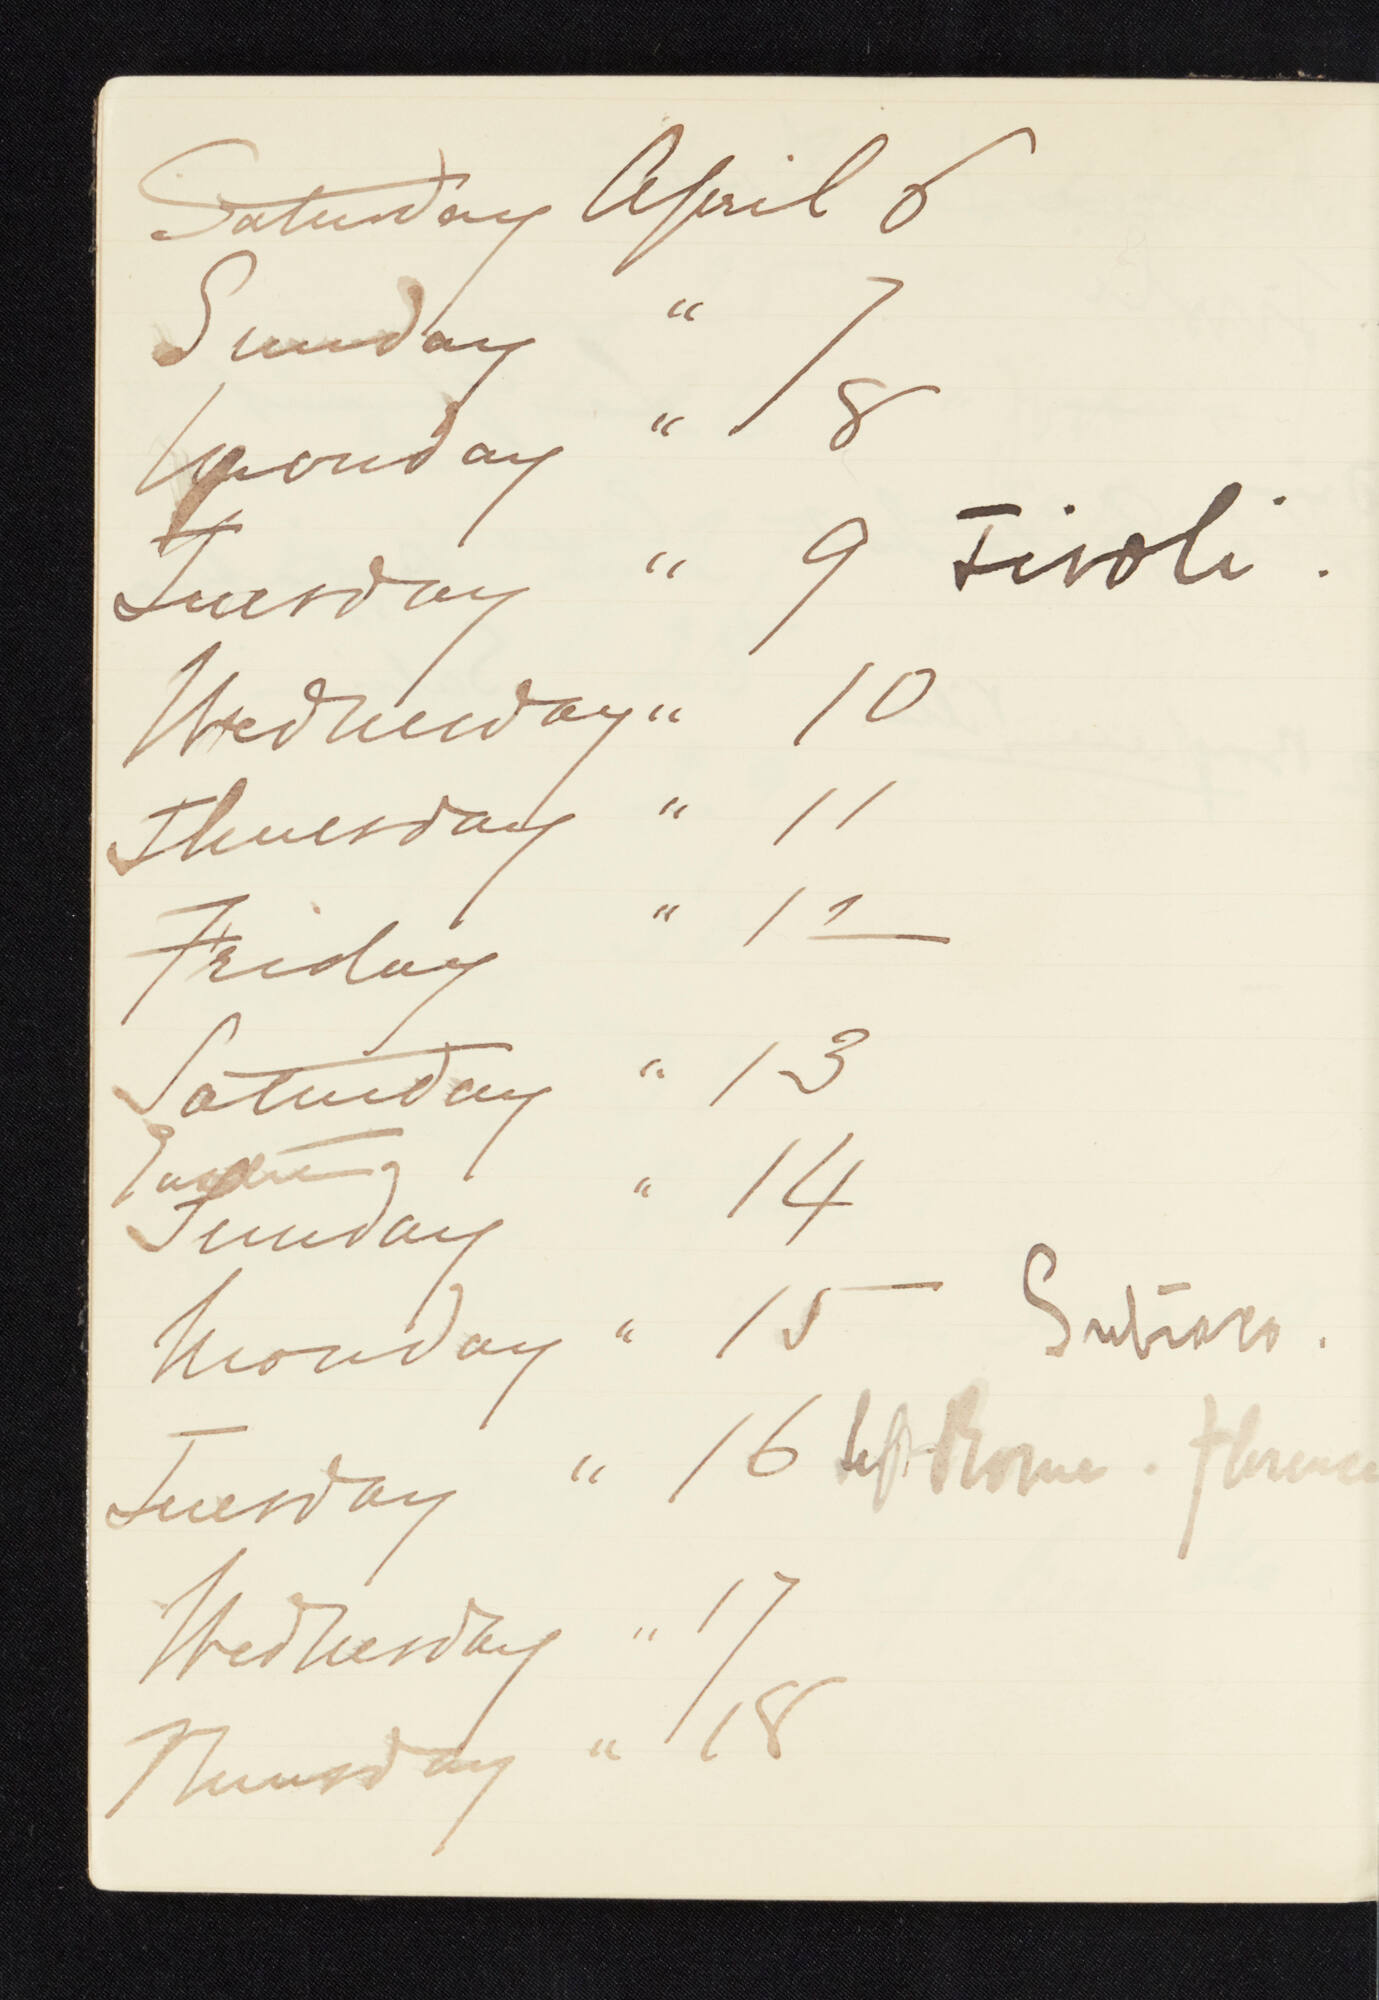 Saturday April 6
Sunday " 7
Monday " 8
Tuesday " 9 Tivoli.
Wednesday " 10
Thursday " 11
Friday " 12
Saturday " 13
Easter
Sunday " 14
Monday " 15 Subiaco.
Tuesday " 16 left Rome. Florence
Wednesday " 17
Thursday " 18